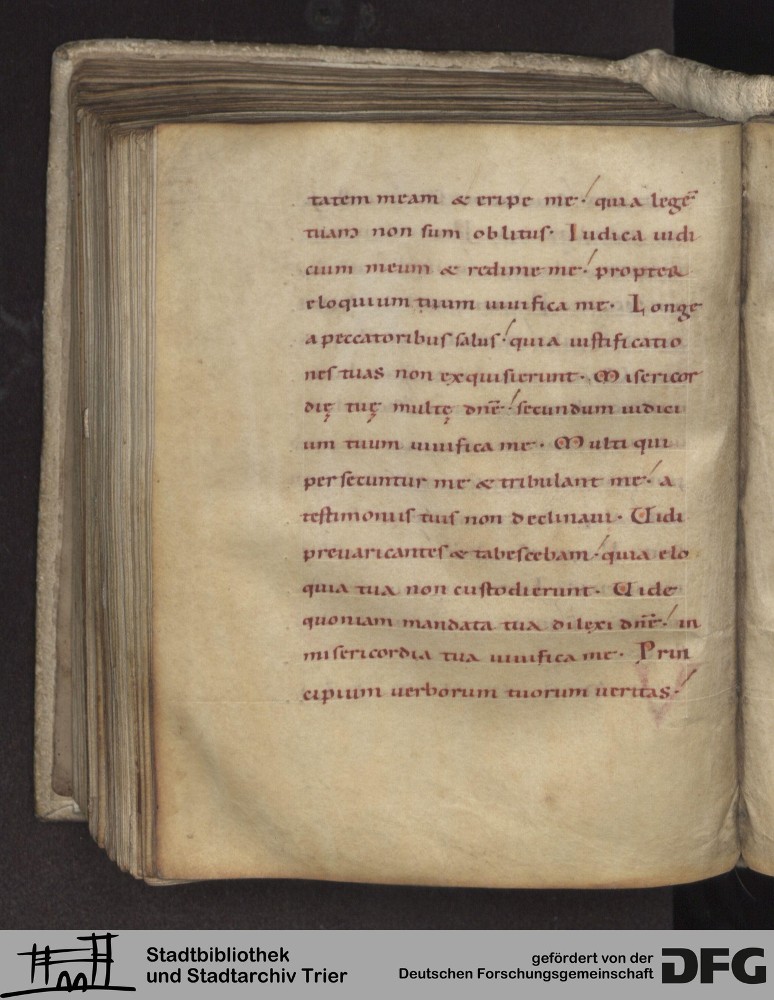 tatem meam & eripe me· quia legē
tuam non sum oblitus· Iudica iudi
cium meum & redime me· propter
eloquium tuum uiuifica me· Longe
a peccatoribus salus· quia iustificatio
nes tuas non exquisierunt· Misericor
dię tuę multę dnē· secundum iudici
um tuum uiuifica me· Multi qui
persecuntur me & tribulant me· a
testimoniis tuis non declinaui· Uidi
preuaricantes & tabescebam· quia elo
quia tua non custodierunt· Uide
quoniam mandata tua dilexi dnē· in
misericordia tua uiuifica me· Prin
cipium uerborum tuorum ueritas·
Stadtbibliothek
und Stadtarchiv Trier
gefördert von der
Deutschen Forschungsgemeinschaft
DFG